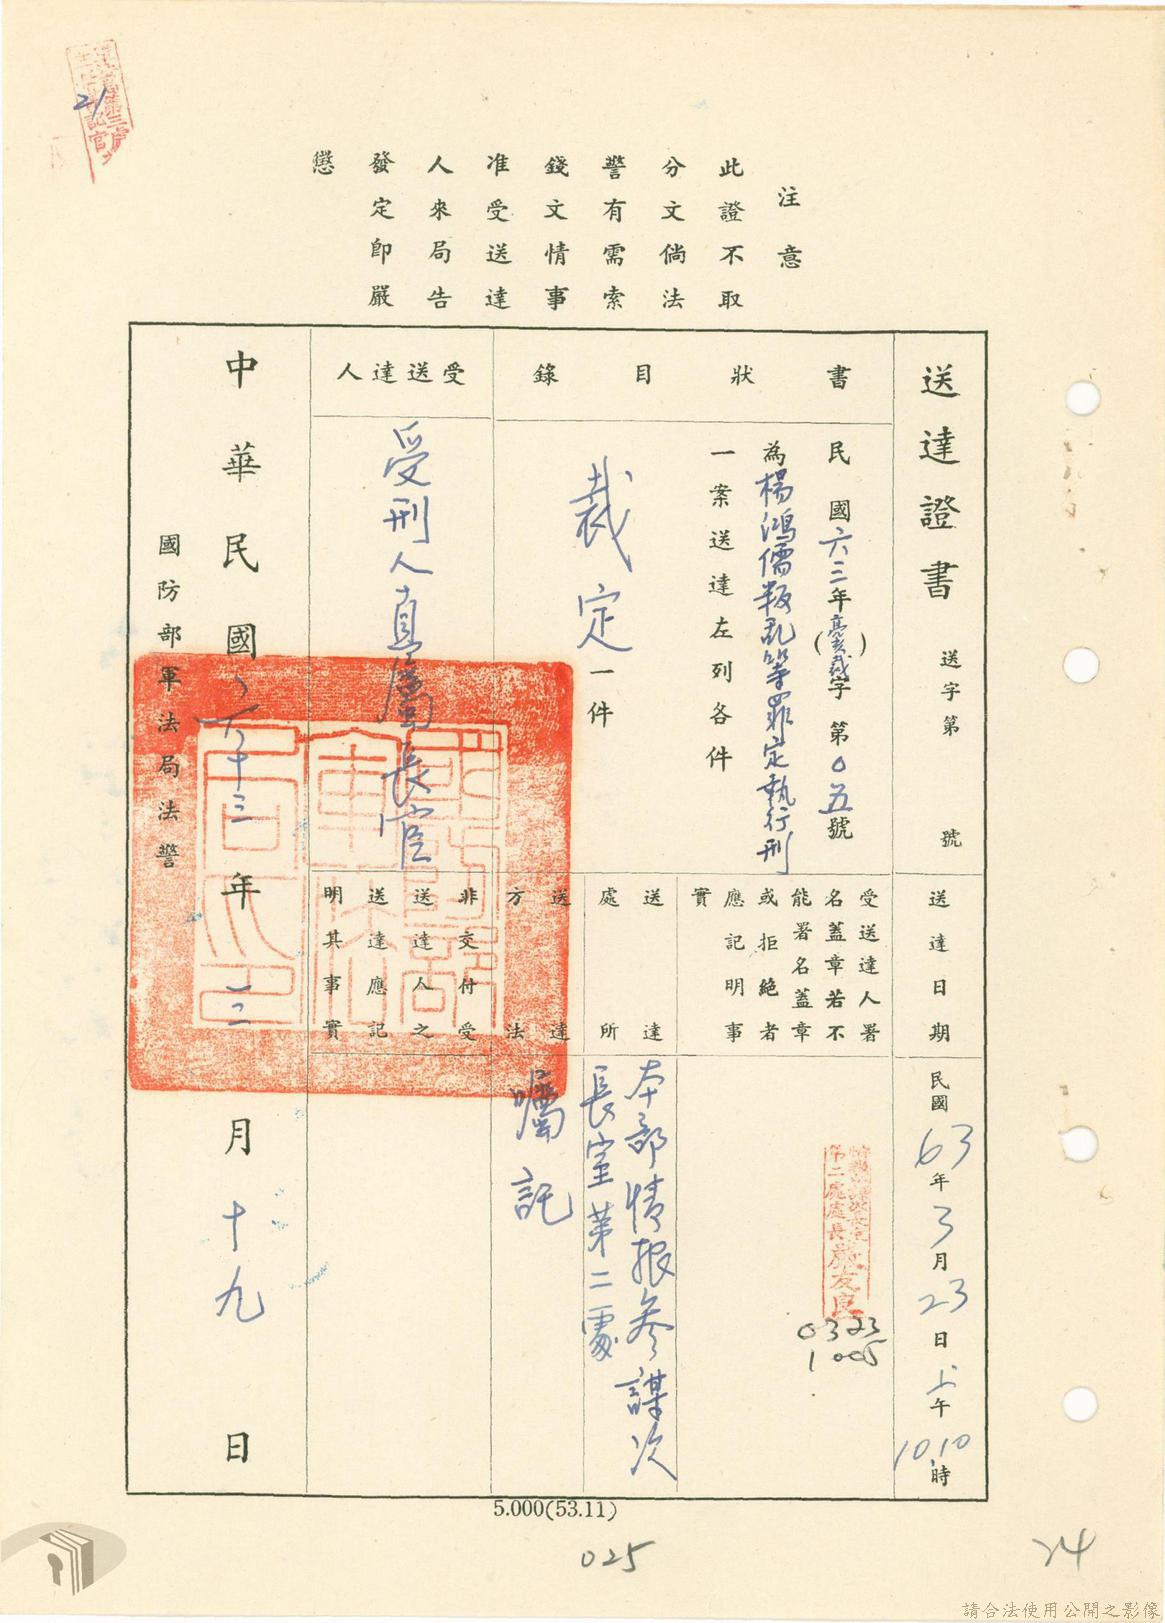 注意
此證不取
分文倘法
警有需索
錢文情事
准受送達
人來局告
發定即嚴
懲
送達證書
送字第 號
書狀目錄
民國六三年(高亥裁)字第0五號
為楊鴻儒叛乱等罪定執行刑
一案送達左列各件
裁定一件
受送達人
受刑人直屬長官
送達日期
民國63年3月23日上午10.10時
受送達人署
名蓋章若不
能署名蓋章
或拒絶者
應記明事
實
嚴友良
第二處處長
0323
1005
送達處所
本部情報參謀次
長室第二處
送達方法
囑託
非交付受
送達人之
送達應記
明其事實
中華民國六十三年三月十九日
國防部軍法局法警
5.000(53.11)
025
24
21
請合法使用公開之影像